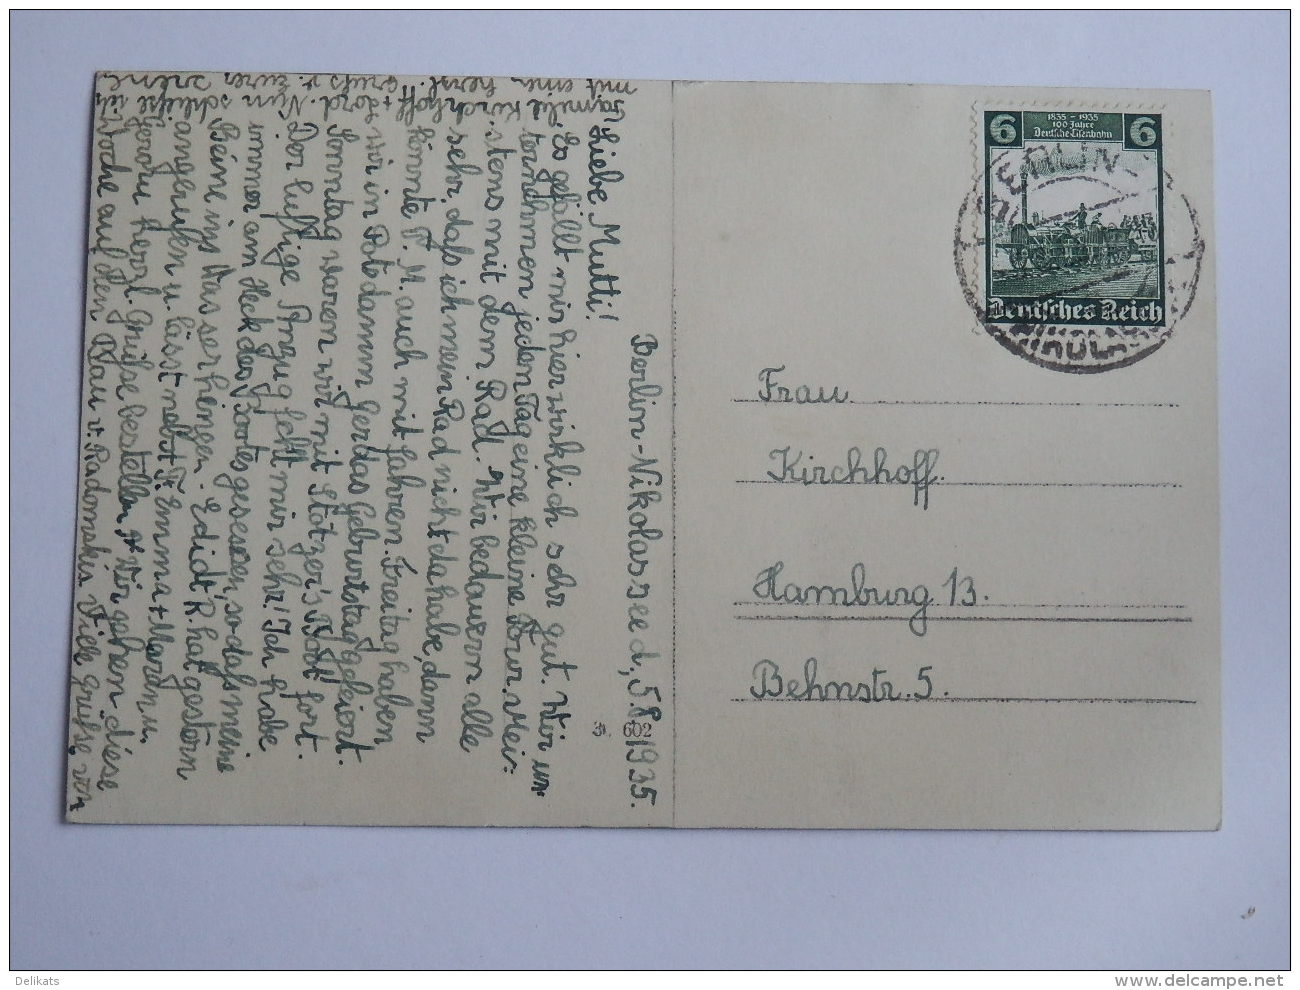 Berlin-Nikolassee d, 5.8.1935.
Liebe Mutti!
Es gefällt mir hier wirklich sehr gut. Wir un-
ternehmen jeden Tag eine kleine Tour. Mei-
stens mit dem Rad. Wir bedauern alle
sehr, daß ich mein Rad nicht da habe, denn
könnte T. M. auch mit fahren. Freitag haben
wir in Potsdamm Gerdas Geburtstag gefeiert.
Sonntag waren wir mit Stötzer's Boot fort.
Der luftige Anzug fehlt mir sehr! Ich habe
immer am Heck des Bootes gesessen, sodaß meine
Beine ins Wasser hingen. Edidt R. hat gestern
angerufen u. lässt nebst F. Emma + Margu.
Georgu herzl. Grüße bestellen. Wir gehen diese
Woche auf den Bau v. Radomskis. Viele Grüße von
Familie Kirchhoff + Gerd. Nun schließe ich
mit ein herzl. Gruß v. Eurer
Irene
D. 602
6 1835 - 1935 6
100 Jahre
Deutsche Eisenbahn
Deutsches Reich
BERLIN-
NIKOLASSEE
Frau
Kirchhoff.
Hamburg 13.
Behnstr. 5.
Delikats
www.delcampe.net